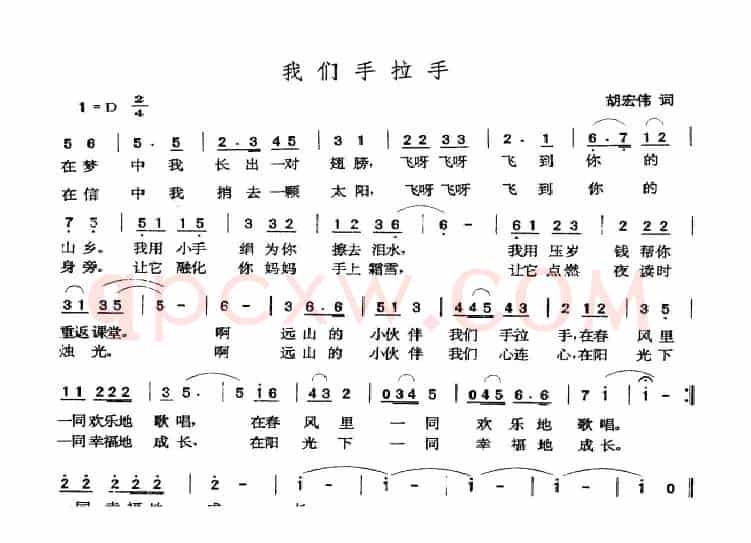 我们手拉手
1=D 2/4
胡宏伟 词
5 6 | 5· 5 | 2·3 45 | 3 1 | 22 33 | 2· 1 | 6·7 12 |
在梦 中我 长出一对 翅膀,飞呀飞呀 飞到 你的
在信 中我 捎去一颗 太阳,飞呀飞呀 飞到 你的
7 5 | 51 15 | 3 32 | 36 36 | 6 - | 61 23 | 2 22 |
山乡。我用小手 绢为你 擦去泪水, 我用压岁 钱帮你
身旁。让它融化 你妈妈 手上霜雪, 让它点燃 夜读时
qpcxw.COM
31 35 | 5 - | 6 - | 36·6 | 51 3 | 445 43 | 2 12 | 3 5 |
重返课堂。 啊 远山的 小伙伴 我们手拉 手,在春 风里
烛光。 啊 远山的 小伙伴 我们心连 心,在阳 光下
11 222 | 35· | 5 i6 | 43 2 | 034 5 | 045 6·6 | 7 i | i - :||
一同欢乐地 歌唱, 在春 风里 一同 欢乐地 歌唱。
一同幸福地 成长, 在阳 光下 一同 幸福地 成长。
2 2 2 2 | 2 - | i - | i - | i - | i - | i 0 ||